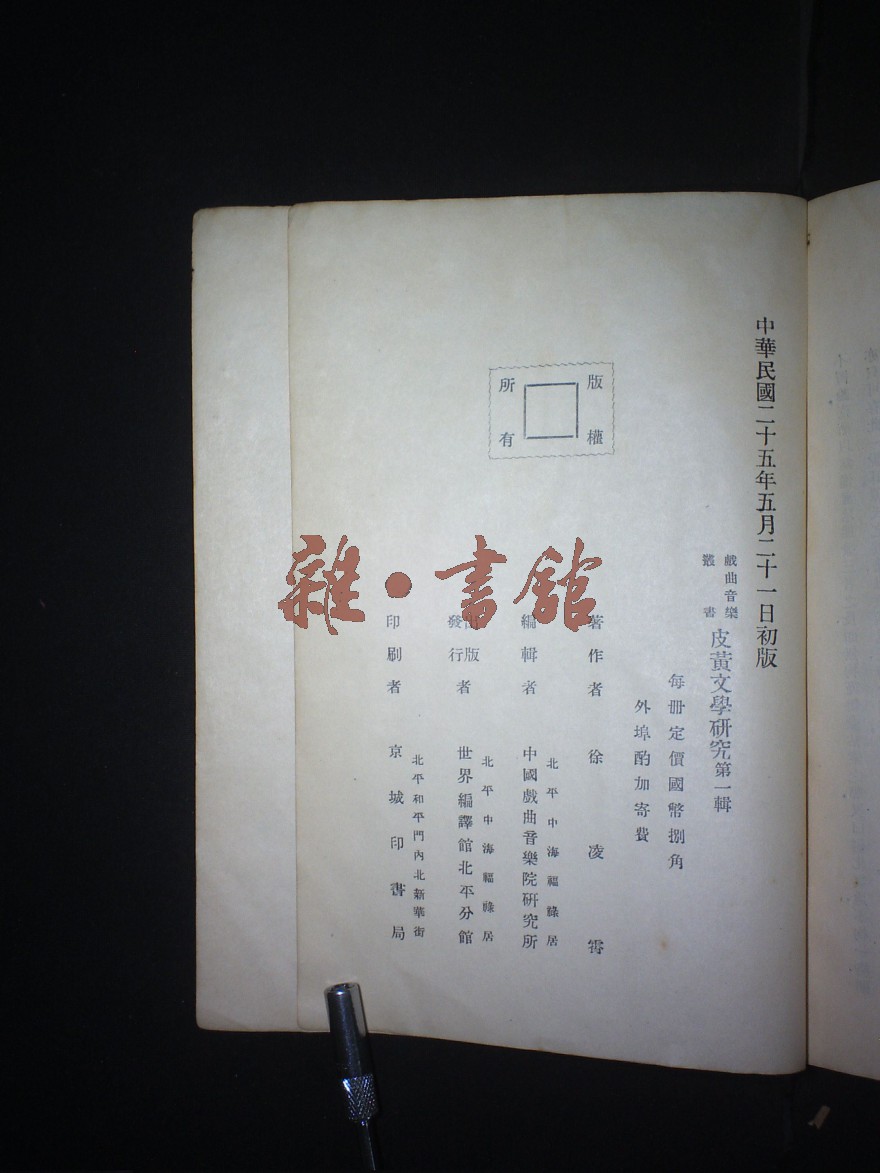 中華民國二十五年五月二十一日初版
戲曲音樂
叢書
皮黃文學研究第一輯
每册定價國幣捌角
外埠酌加寄費
版權
所有
著作者 徐凌霄
編輯者 北平中海福祿居
中國戲曲音樂院研究所
出版
發行者 北平中海福祿居
世界編譯館北平分館
印刷者 北平和平門內北新華街
京城印書局
雜·書館